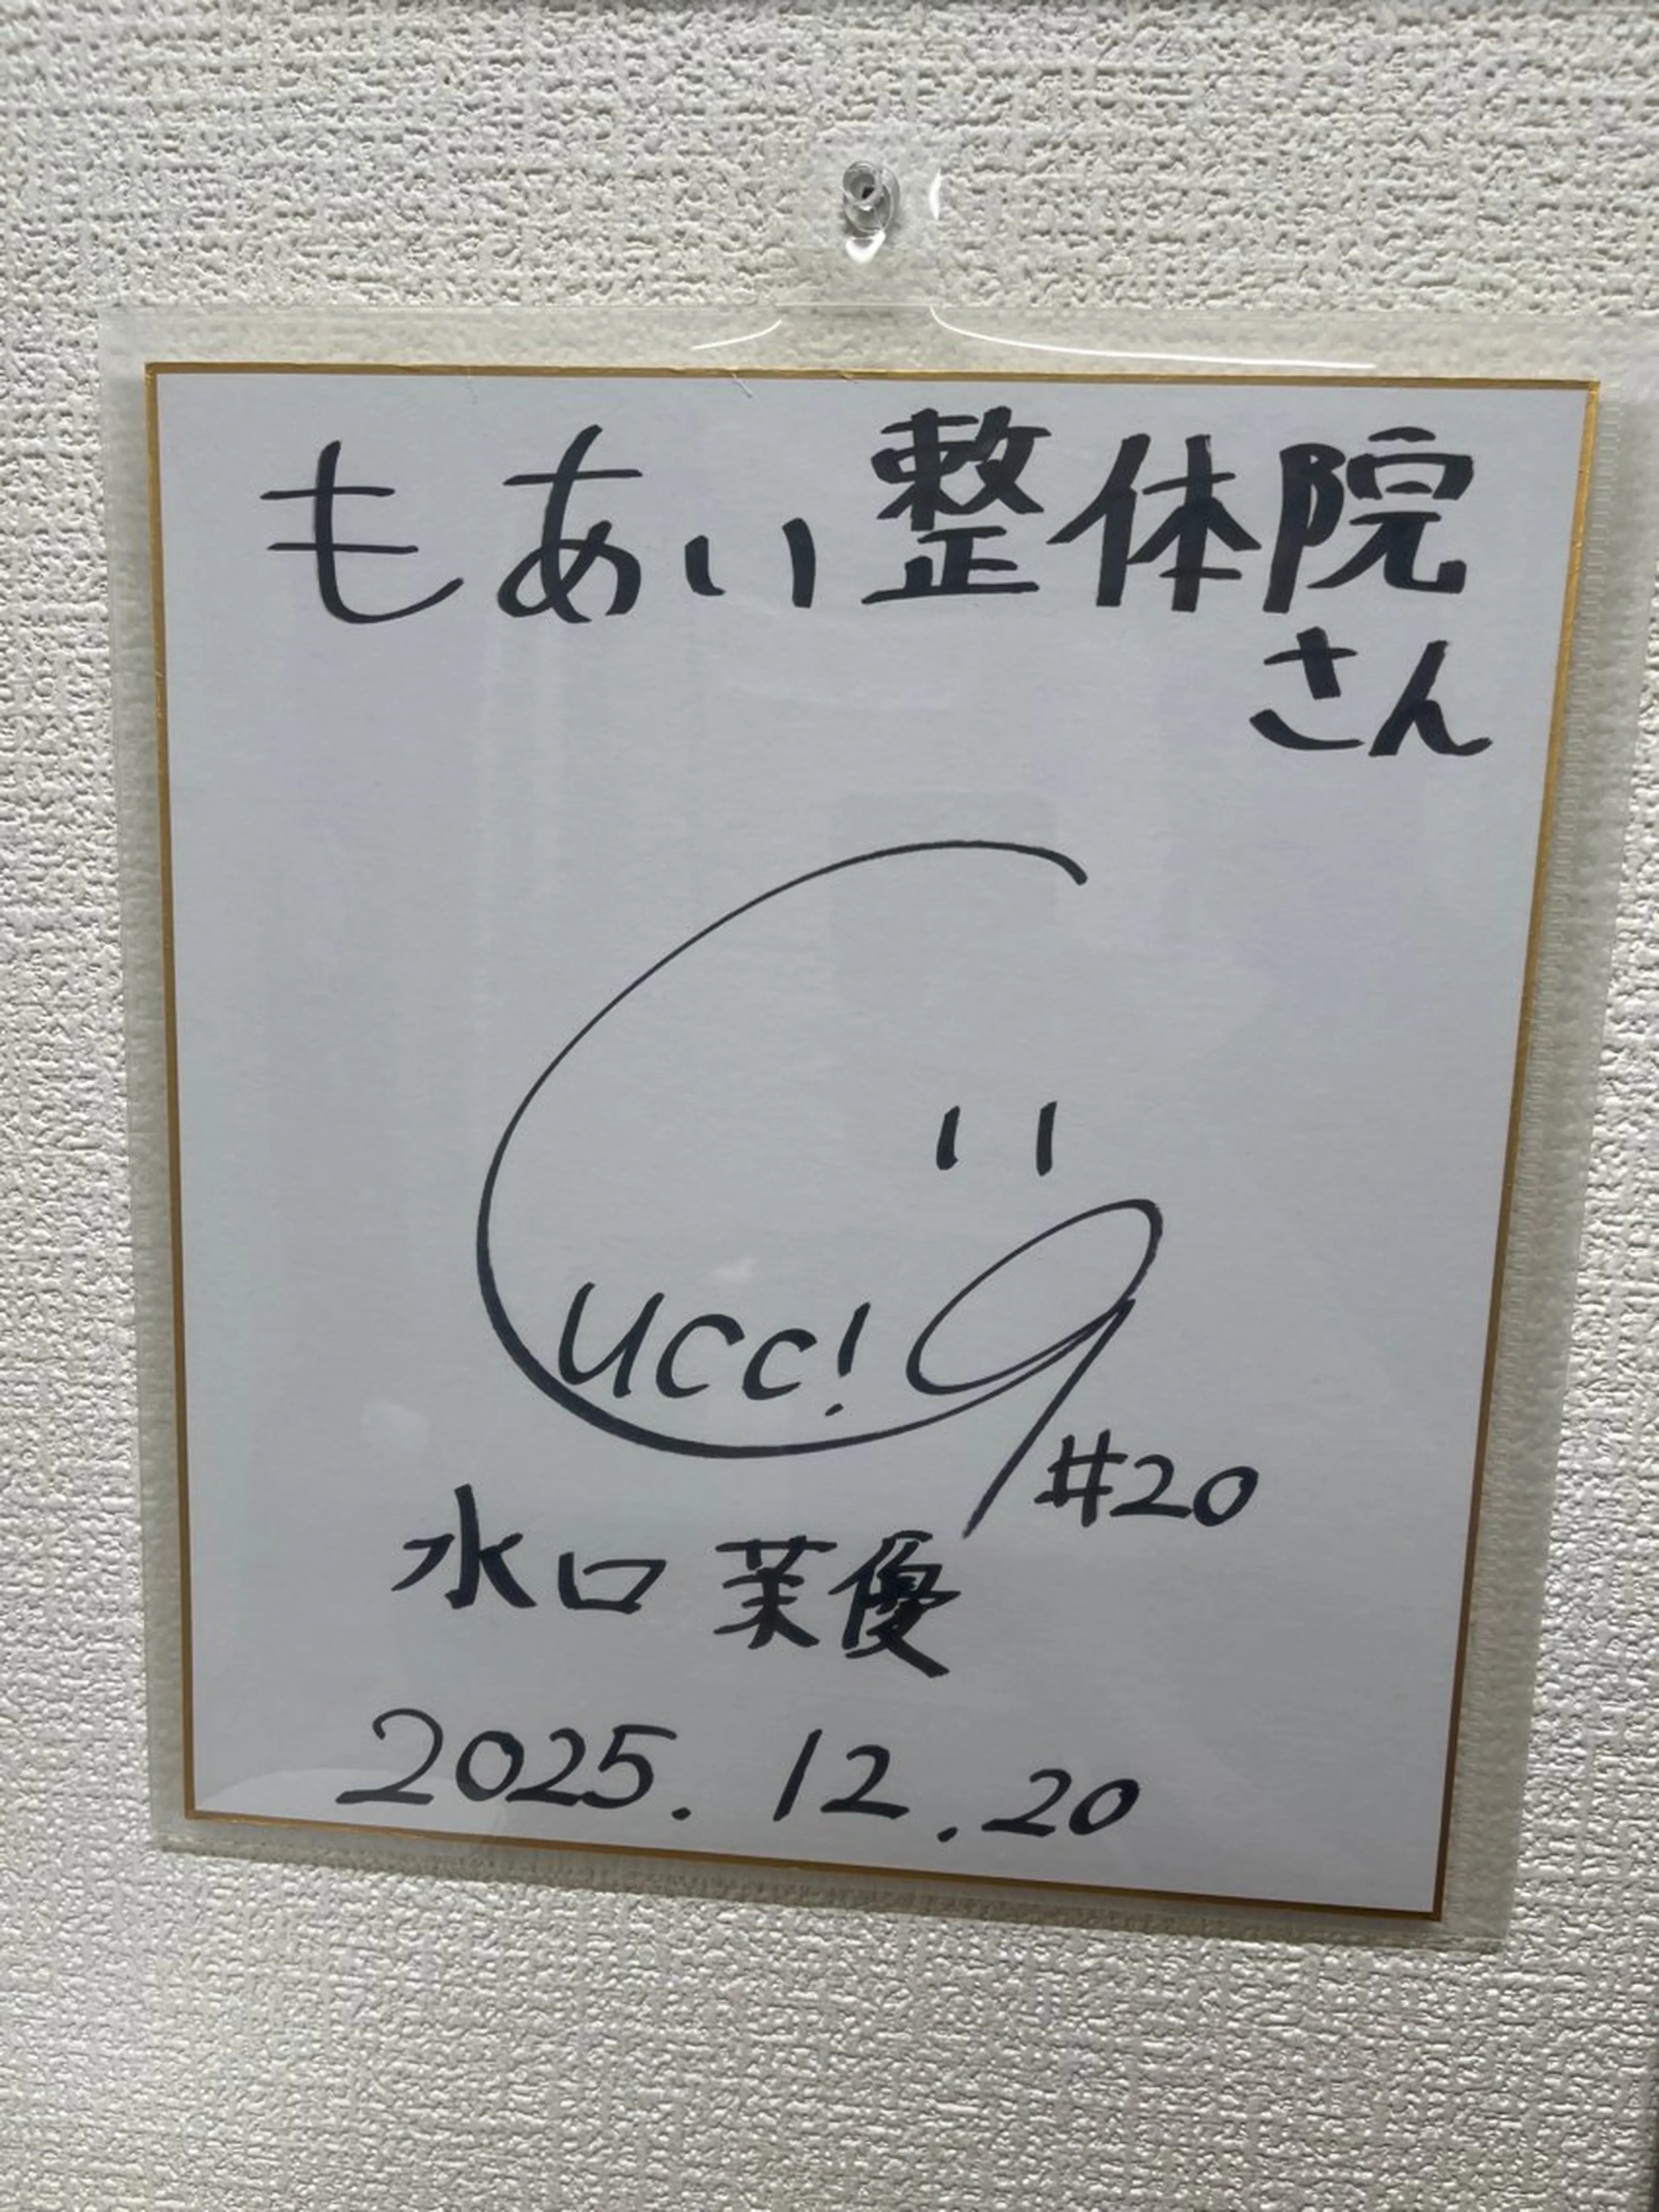 もあい整体院
さん
Gucci
#20
水口茉優
2025.12.20